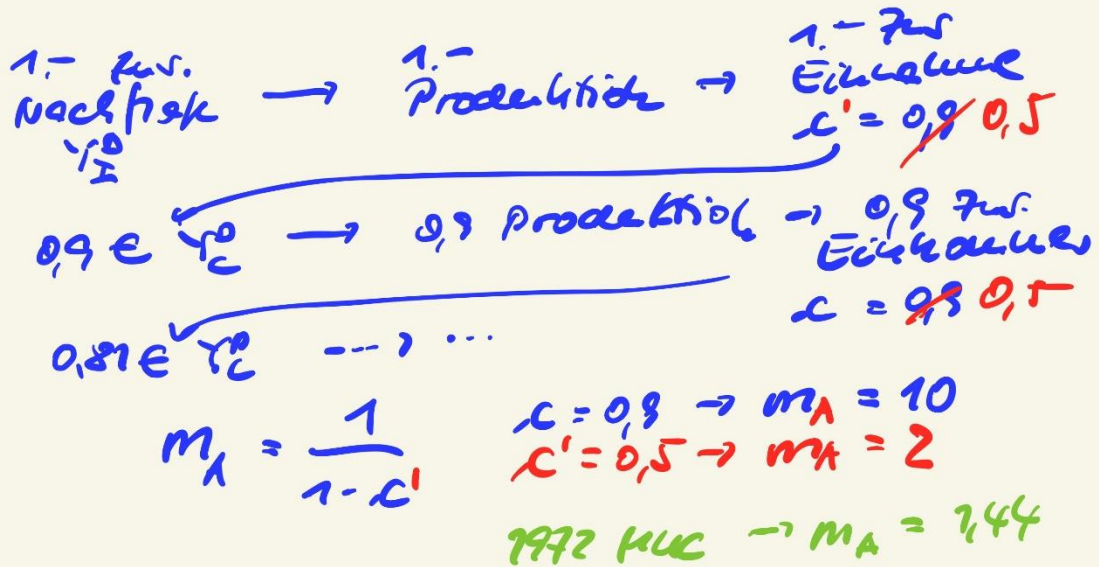 1.- zus. Nachfrage → 1.- Produktion → 1.- zus Einnahme
Y_I^D
c' = 0,9 0,5
0,9 € Y_C^D → 0,9 Produktion → 0,9 zus. Einkommen
c = 0,9 0,5
0,81 € Y_C^D ---> ...
m_A = 1 / (1 - c')
c = 0,9 → m_A = 10
c' = 0,5 → m_A = 2
1972 → m_A = 1,44